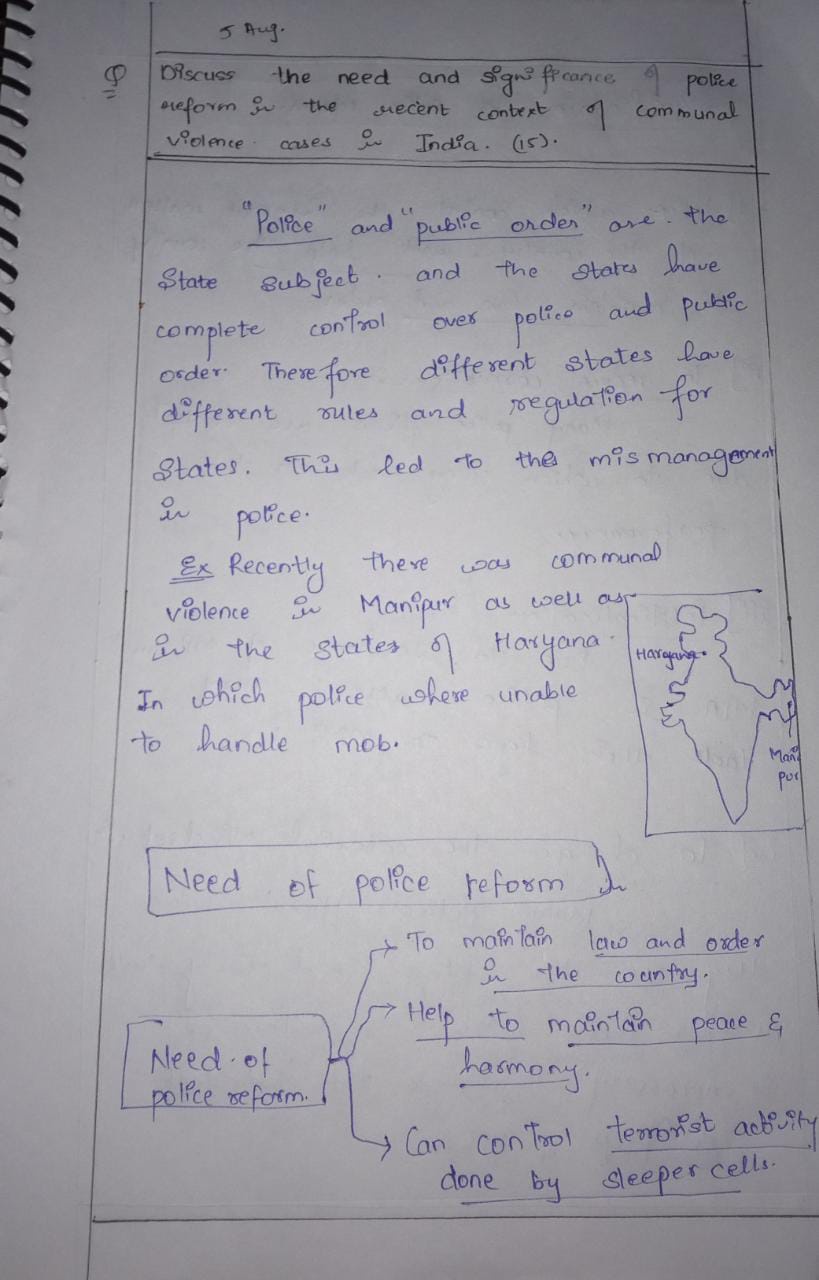 5 Aug.
Q Discuss the need and significance of police
reform in the recent context of communal
violence cases in India. (15).
"Police" and "public order" are the
State subject. and the states have
complete control over police and public
order. Therefore different states have
different rules and regulation for
States. This led to the mismanagement
in police.
Ex Recently there was communal
violence in Manipur as well as
in the states of Haryana.
In which police where unable
to handle mob.
Haryana
Mani
pur
Need of police reform
To maintain law and order
in the country.
Help to maintain peace &
harmony.
Need of
police reform.
Can control terrorist activity
done by sleeper cells.